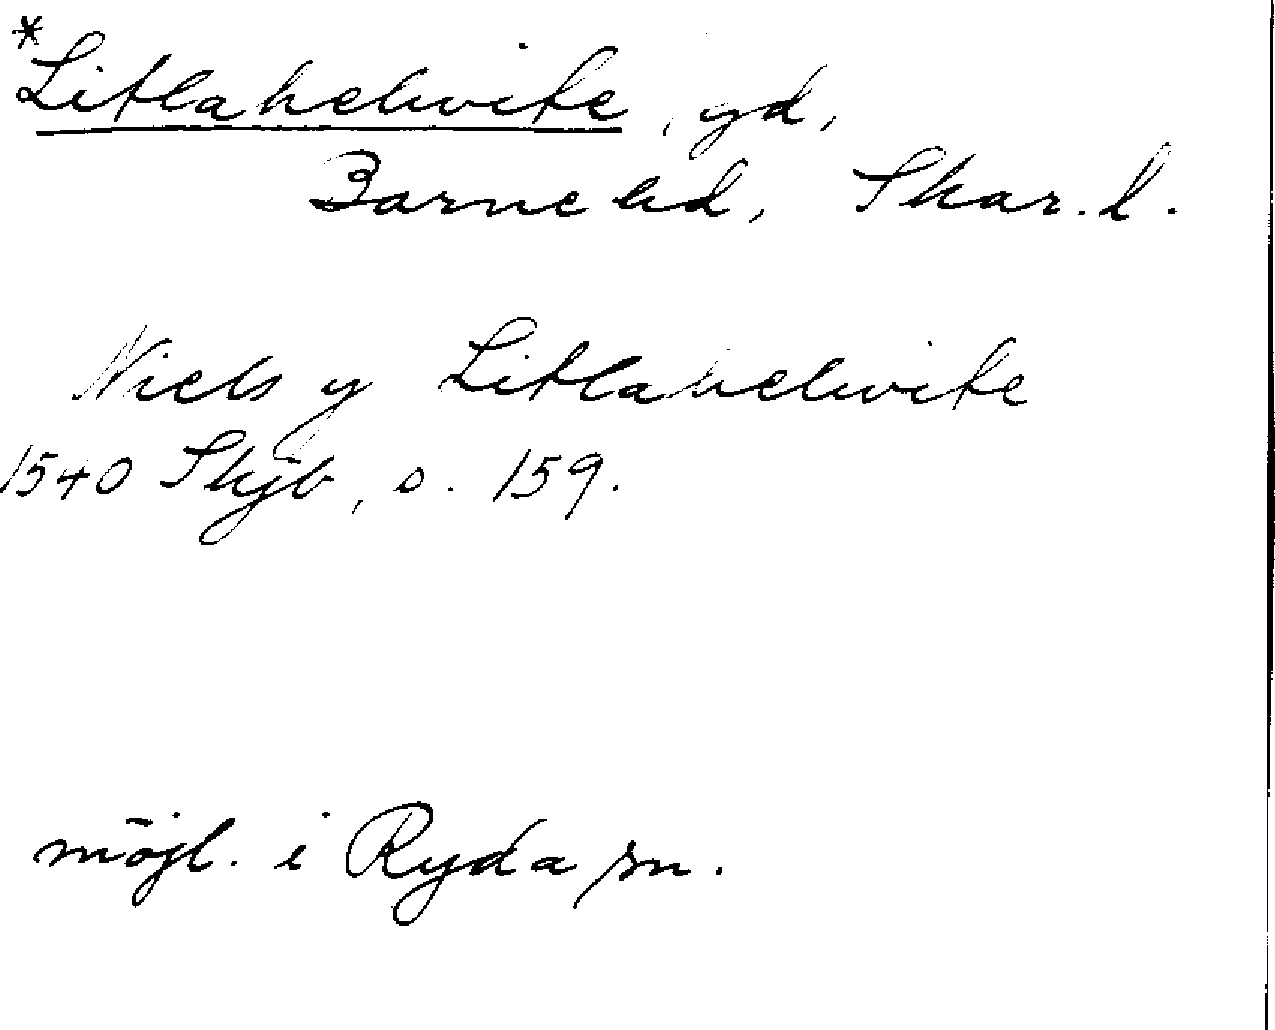 *Litlahelwite, gd,
Barne hd, Skar. l.
Niels y Litlahelwite
1540 Skjb, s. 159.
möjl. i Ryda sn.